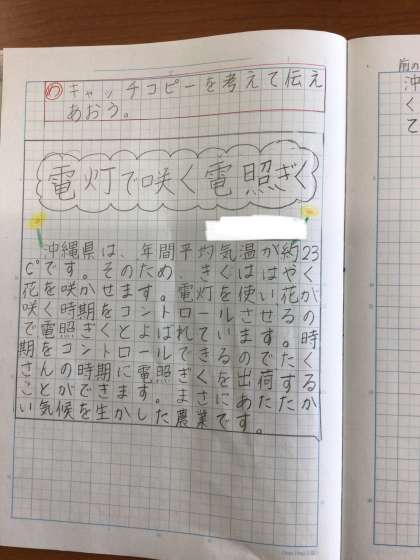 め キャッチコピーを考えて伝え
あおう。
電灯で咲く電照ぎく
沖縄県は、年間平均気温が約23
C°です。そのため、きくははやく
花を咲かせます。電灯を使い花が
咲く時期をコントロールさせるの
で電照ぎくとよばれています。時
期をコントロールできるのでたく
さんの時期に電照ぎくを出荷する
ことができます。まさにあたたか
い気候を生かした農業です。
前の
沖
く
て